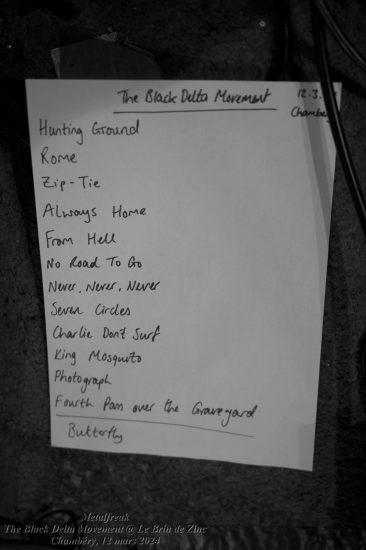 The Black Delta Movement
12.3.
Hunting Ground
Rome
Zip-Tie
Always Home
From Hell
No Road To Go
Never, Never, Never
Seven Circles
Charlie Don't Surf
King Mosquito
Photograph
Fourth Pass over the Graveyard
Butterfly
Metalfreak
The Black Delta Movement @ Le Brin de Zinc
Chambéry, 12 mars 2024